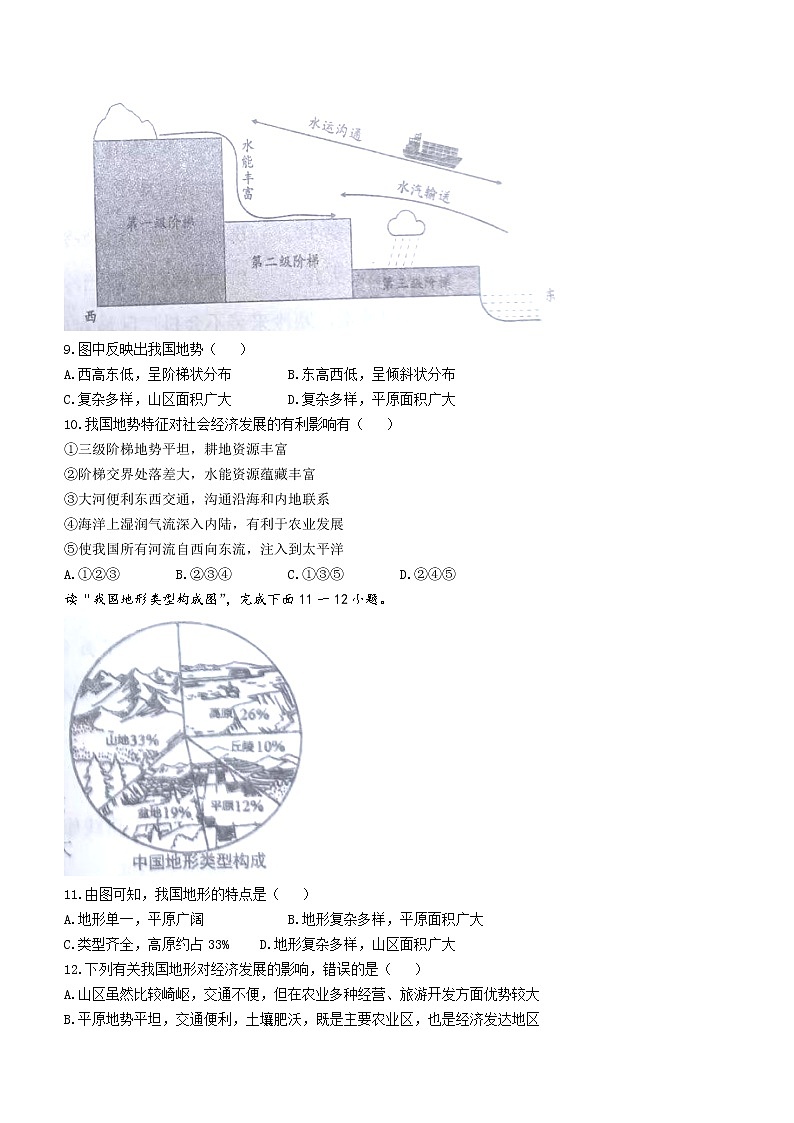 水运沟通
水能丰富
水汽输送
第一级阶梯
第二级阶梯
第三级阶梯
东
西
9.图中反映出我国地势（   ）
A.西高东低，呈阶梯状分布 B.东高西低，呈倾斜状分布
C.复杂多样，山区面积广大 D.复杂多样，平原面积广大
10.我国地势特征对社会经济发展的有利影响有（   ）
①三级阶梯地势平坦，耕地资源丰富
②阶梯交界处落差大，水能资源蕴藏丰富
③大河便利东西交通，沟通沿海和内地联系
④海洋上湿润气流深入内陆，有利于农业发展
⑤使我国所有河流自西向东流，注入到太平洋
A.①②③ B.②③④ C.①③⑤ D.②④⑤
读“我国地形类型构成图”，完成下面11一12小题。
高原26%
山地33%
丘陵10%
平原12%
盆地19%
中国地形类型构成
11.由图可知，我国地形的特点是（   ）
A.地形单一，平原广阔 B.地形复杂多样，平原面积广大
C.类型齐全，高原约占33% D.地形复杂多样，山区面积广大
12.下列有关我国地形对经济发展的影响，错误的是（   ）
A.山区虽然比较崎岖，交通不便，但在农业多种经营、旅游开发方面优势较大
B.平原地势平坦，交通便利，土壤肥沃，既是主要农业区，也是经济发达地区